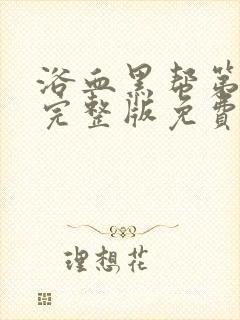 浴血黑帮第
完整版免费
理想花